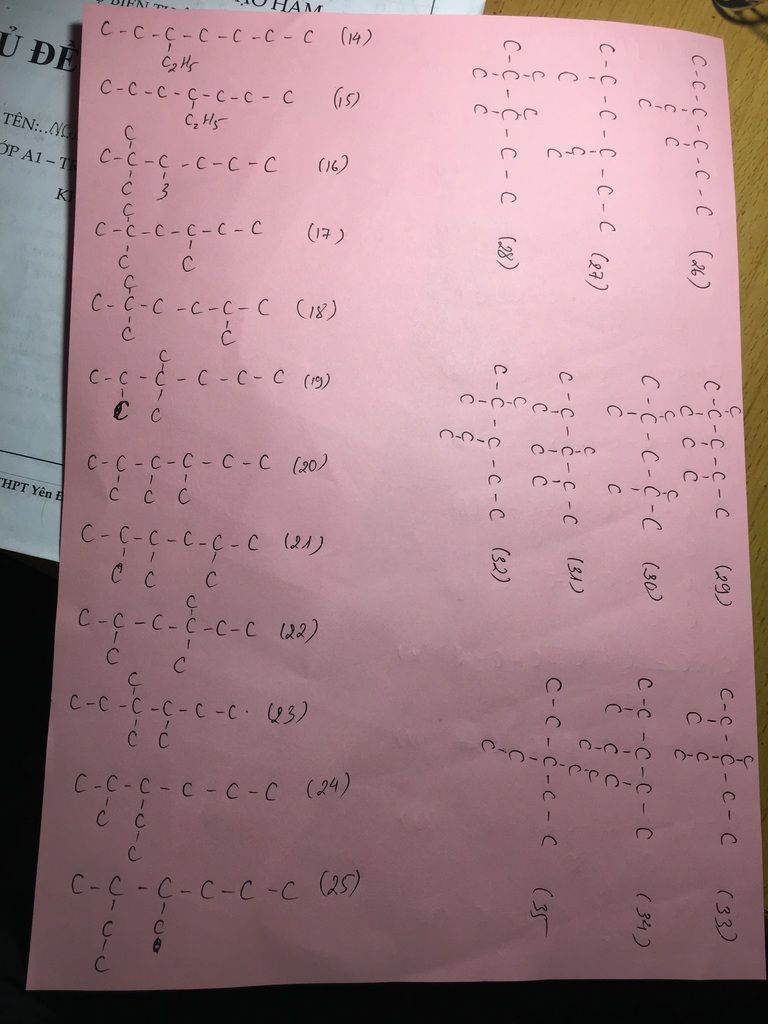 C - C - C - C - C - C - C (14)
C₂H₅
C - C - C - C - C - C - C (15)
C₂H₅
C
C - C - C - C - C - C (16)
C 3
C
C - C - C - C - C - C (17)
C C
C
C - C - C - C - C - C (18)
C C
C
C - C - C - C - C - C (19)
C C
C - C - C - C - C - C (20)
C C C
C - C - C - C - C - C (21)
C C C
C
C - C - C - C - C - C (22)
C C
C
C - C - C - C - C - C (23)
C C
C - C - C - C - C - C (24)
C C
C
C - C - C - C - C - C (25)
C C
C
C - C - C - C - C - C (26)
C C
C
C - C - C - C - C - C (27)
C C
C
C C
C - C - C - C - C (28)
C C
C
C - C - C - C - C (29)
C C C
C C
C - C - C - C - C (30)
C C
C
C - C - C - C - C (31)
C C C
C
C - C - C - C - C (32)
C C
C
C
C - C - C - C - C (33)
C C
C
C - C - C - C - C (34)
C C C
C
C
C
C - C - C - C - C (35
C
C
Ủ ĐỀ
TÊN:
ỚP A1 – T
HPT Yên Đ